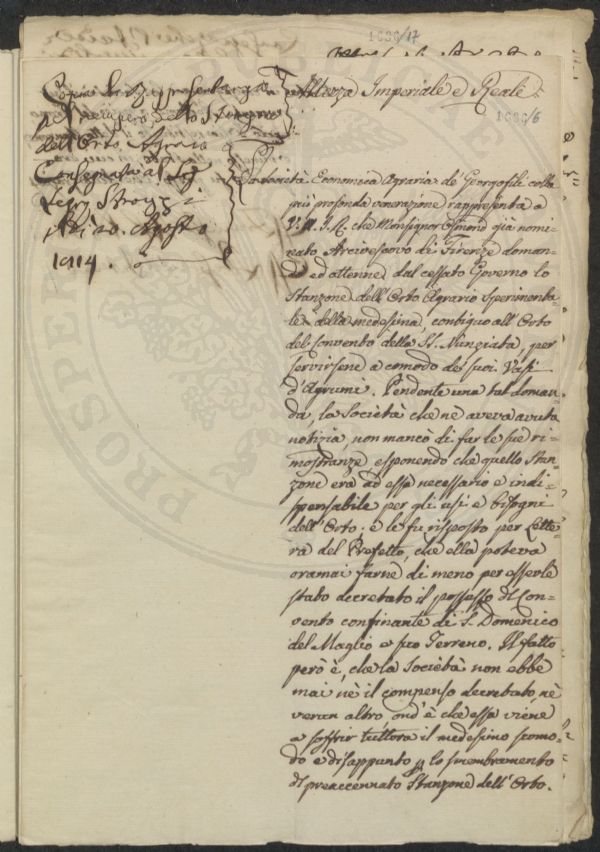 1686/17
1686/6
Copia di Rappresentanza
pel recupero dello Stanzone
dell'Orto Agrario
Consegnata al Sig
Strozzi
Agosto
1814.
Altezza Imperiale e Reale
La Società Economica Agraria de Georgofili colla
più profonda venerazione rappresenta a
V. A. I. R. che Monsignor Osmond già nomi-
nato Arcivescovo di Firenze doman-
dò ed ottenne dal cessato Governo lo
Stanzone dell'Orto Agrario Sperimenta-
le della medesima, contiguo all'Orto
del Convento della SS. Nunziata, per
servirsene a comodo de suoi Vasi
d'Agrumi. Pendente una tal doman-
da, la Società che ne aveva avuta
notizia, non mancò di far le sue ri-
mostranze esponendo che quello Stan-
zone era ad essa necessario e indi-
spensabile per gli usi e bisogni
dell'Orto: e le fu risposto per Lette-
ra del Prefetto, che ella poteva
oramai farne di meno per esserle
stato decretato il possesso del Con-
vento confinante di S. Domenico
del Maglio e suo Terreno. Il fatto
però è, che la Società non ebbe
mai nè il compenso decretato, nè
verun altro, ond'è che essa viene
a soffrir tuttora il medesimo scomo-
do e disappunto lo smembramento
del preaccennato Stanzone dell'Orto.
PROSPERI